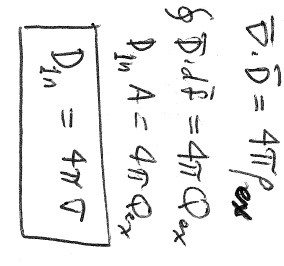 ∇̄·D̄ = 4πρ_ex
∮ D̄·dF̄ = 4πQ_ex
D_1n A = 4πQ_ex
D_1n = 4πσ